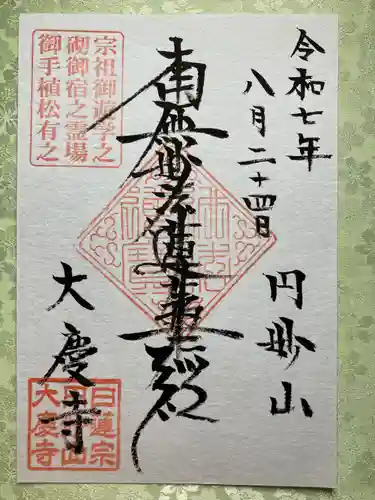 令和七年
八月二十四日
円妙山
南無妙法蓮華経
宗祖御遊学之
砌御宿之霊場
御手植松有之
大慶寺
日蓮宗
円妙山
大慶寺